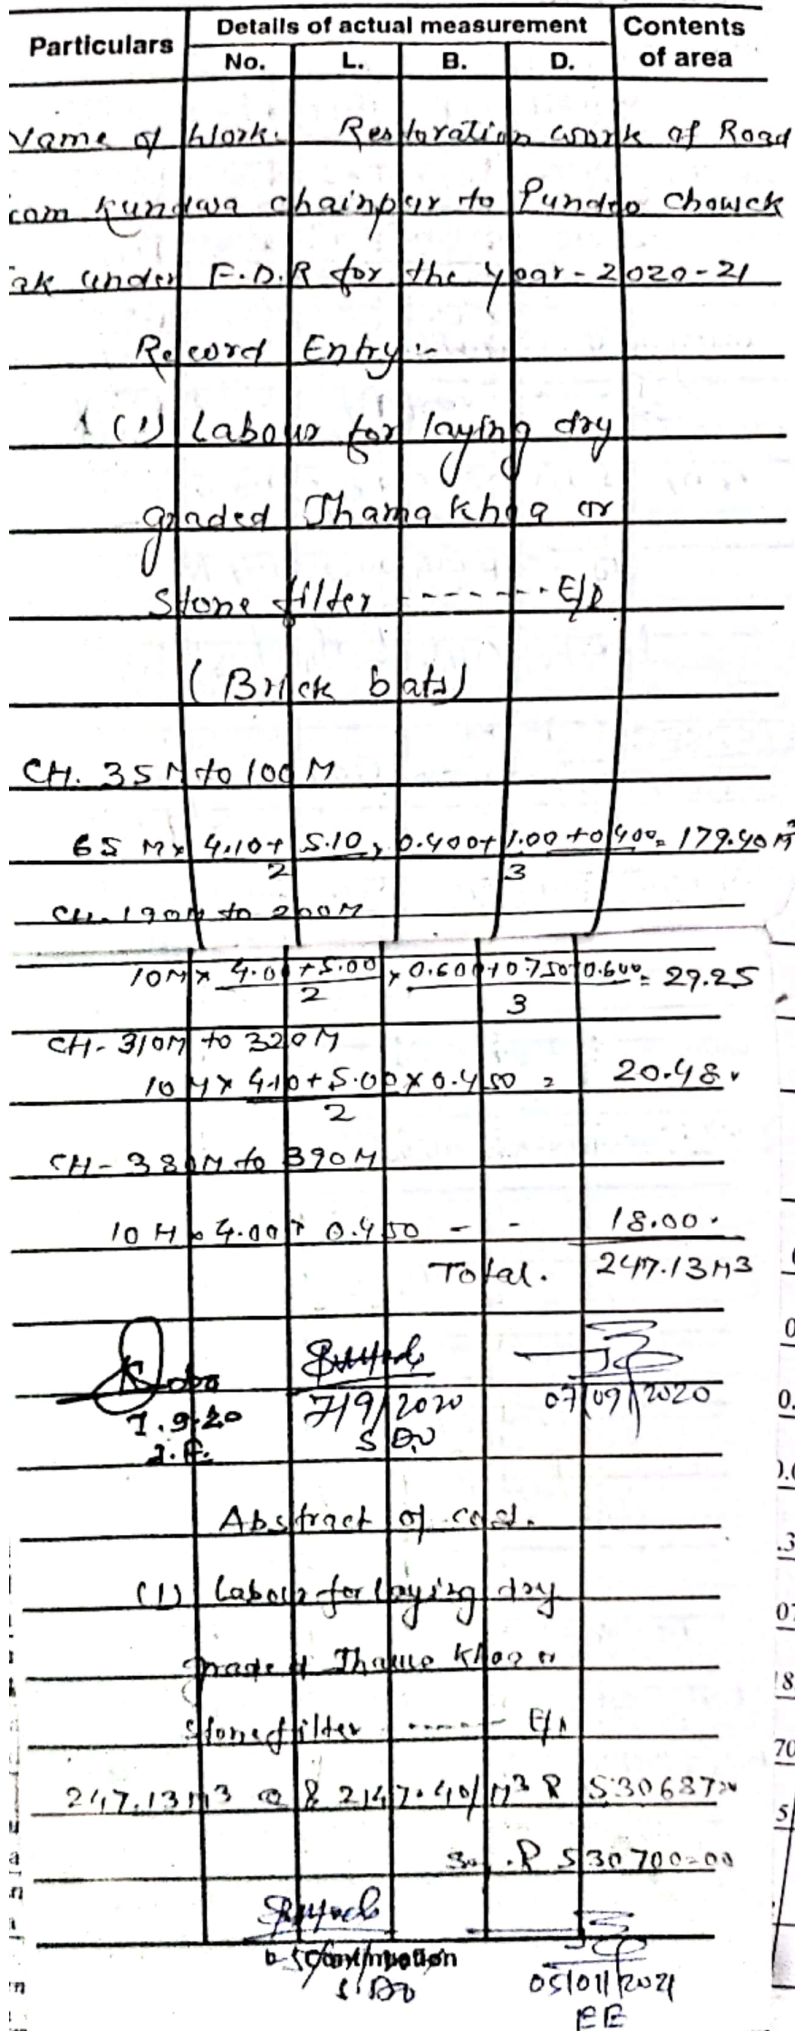 Particulars
Details of actual measurement
Contents of area
No. L. B. D.
Name of Work:- Restoration work of Road
from Kundwa chainpur to Pundro Chowck
Tak under F.D.R for the year-2020-21
Record Entry:-
(1) Labour for laying dry
graded Jhama khoa or
Stone filter ------- E/D
(Brick bats)
CH. 35M to 100M
65 M x 4.10+5.10/2 x 0.400+1.00+0.400/3 = 179.40 M³
CH. 190M to 200M
10M x 4.00+5.00/2 x 0.600+0.750+0.600/3 = 29.25
CH-310M to 320M
10 M x 4.10+5.00/2 x 0.450 = 20.48
CH-380M to 390M
10 M x 4.00 x 0.450 - - 18.00
Total. 247.13 M3
7.9.20
J.E.
7/9/2020
S DO
07/09/2020
Abstract of cost.
(1) Labour for laying dry
graded Jhama Khoa or
Stone filter ------ E/D
247.13 M3 @ R 2147.40/M3 R 530687=
R 530700=00
S.DO
05/01/2021
EE